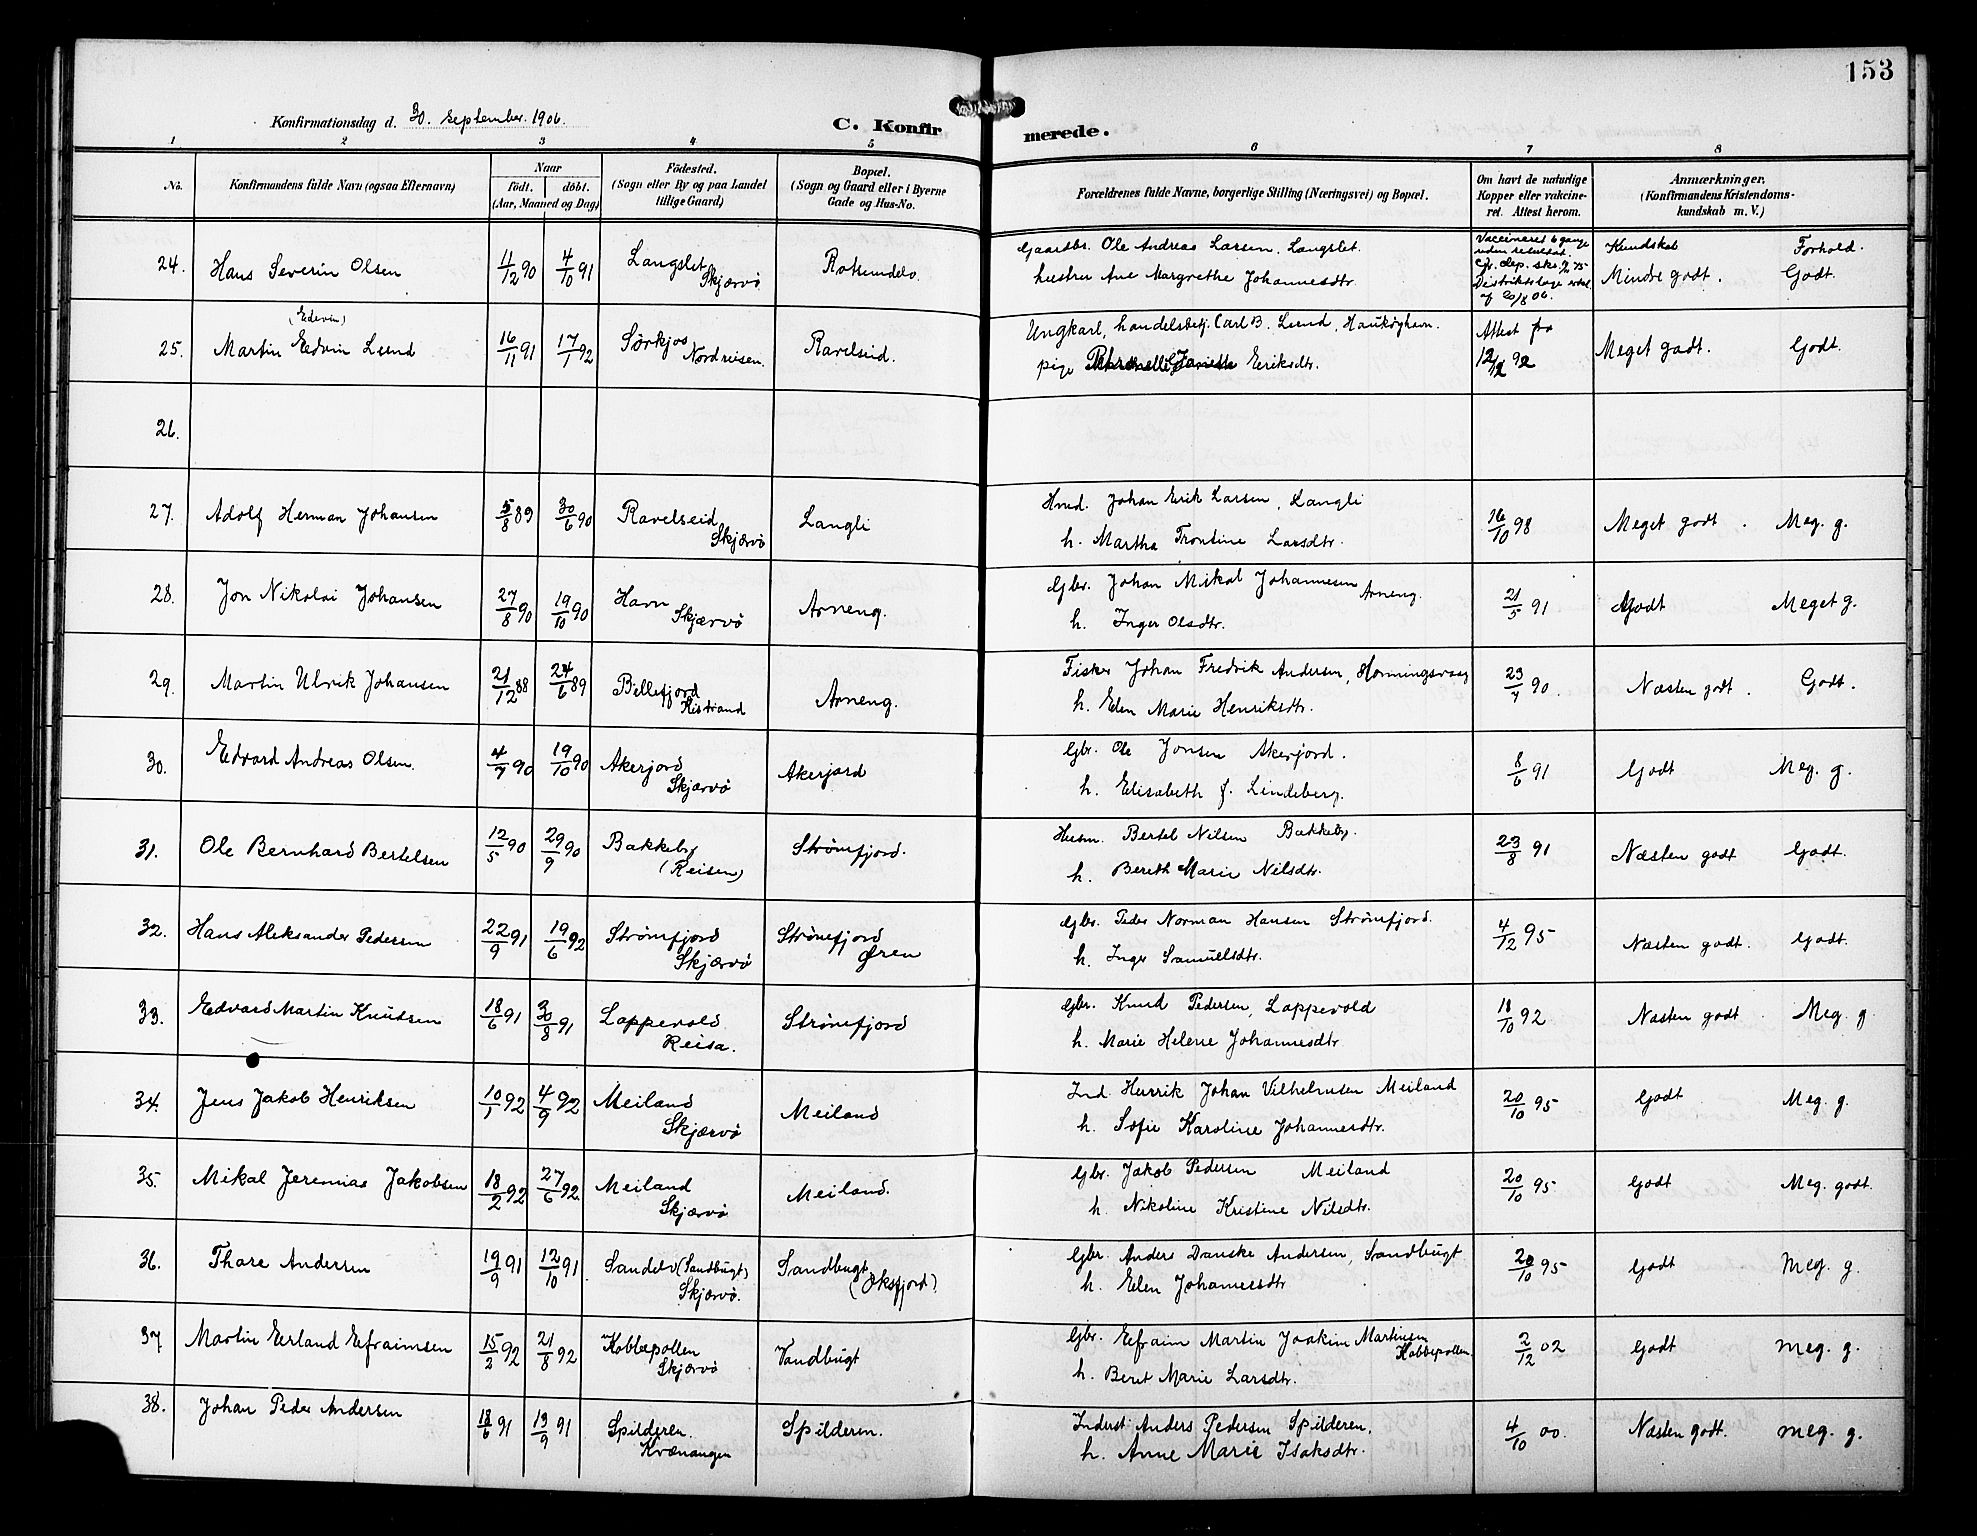 153
Konfirmationsdag d. 30. september. 1906.
C. Konfirmerede.
1 2 3 4 5 6 7 8
No.
Konfirmandens fulde Navn (ogsaa Efternavn)
Naar
født. døbt.
(Aar, Maaned og Dag)
Fødested.
(Sogn eller By og paa Landet
tillige Gaard)
Bopæl.
(Sogn og Gaard eller i Byerne
Gade og Hus-No.
Forældrenes fulde Navne, borgerlige Stilling (Næringsvei) og Bopæl.
Om havt de naturlige
Kopper eller vakcine-
ret. Attest herom.
Anmærkninger.
(Konfirmandens Kristendoms-
kundskab m. V.)
24. Hans Severin Olsen 11/12 90 4/10 91 Langslet Skjærvø Gaardbr. Ole Andreas Larsen, Langslet. Vaccineret 6 gange uden resultat. Kundskab Forhold.
hustru Ane Margrethe Johannesdtr. Mindre godt. Godt.
25. Martin (Edevin) Edvin Lund 16/11 91 17/1 92 Sørkjos Nordreisen. Ravelseid. Ungkarl, handelsbetj. Carl B. Lund, Haukøyhavn. Attest fra Meget godt. Godt.
pige Eriksdtr. 12/12 92
26.
27. Adolf Herman Johansen 5/8 89 30/6 90 Ravelseid Skjærvø Langli Hmd. Johan Erik Larsen, Langli 16/10 98 Meget godt. Meg. g.
h. Martha Trontine Larsdtr.
28. Jon Nikolai Johansen 27/8 90 19/10 90 Havn Skjærvø Arneng. Gbr. Johan Mikal Johannesen Arneng. 21/5 91 Godt Meget g.
h. Inger Olsdtr.
29. Martin Ulrik Johansen 21/12 88 24/6 89 Billefjord Kistrand Arneng. Fisker Johan Fredrik Andersen, Honningsvaag 23/7 90. Næsten godt. Godt.
h. Elen Marie Henriksdtr.
30. Edvard Andreas Olsen. 4/7 90 19/10 90 Akerjord Skjærvø Akerjord Gbr. Ole Jonsen Akerjord. 8/6 91 Godt Meg. g.
h. Elisabeth f. Lindeberg.
31. Ole Bernhard Bertelsen 12/5 90 29/9 90 Bakkeby (Reisen) Strømfjord. Husm. Bertel Nilsen Bakkeby. 23/8 91 Næsten godt Godt.
h. Bereth Marie Nilsdtr.
32. Hans Aleksander Pedersen 22/9 91 19/6 92 Strømfjord Skjærvø Strømfjord Øren Gbr. Peder Norman Hansen Strømfjord. 4/12 95 Næsten godt. Godt.
h. Inger Samuelsdtr.
33. Edvard Martin Knutsen 18/6 91 30/8 91 Lappevold Reisa. Strømfjord Gbr. Knud Pedersen, Lappevold 18/10 92 Næsten godt. Meg. g
h. Marie Helene Johannesdtr
34. Jens Jakob Henriksen 10/1 92 4/9 92 Meiland Skjærvø Meiland Ind. Henrik Johan Vilhelmsen Meiland 20/10 95 Godt Meg. g.
h. Sofie Karoline Johannesdtr.
35. Mikal Jeremias Jakobsen 18/2 92 27/6 92 Meiland Skjærvø Meiland. Gbr. Jakob Pedersen Meiland 20/10 95 Godt Meg. godt.
h. Nikoline Kristine Nilsdtr.
36. Thare Andersen 19/9 91 12/10 91 Sandelv (Sandbugt) Skjærvø. Sandbugt (Oksfjord) Gbr. Anders Danske Andersen, Sandbugt 20/10 95 Godt Meg. g.
h. Elen Johannesdtr
37 Martin Erland Efraimsen 15/2 92 21/8 92 Kobbepollen Skjærvø Vandbugt Gbr. Efraim Martin Joakim Martinsen Kobbepollen. 2/12 02 Godt Meg. g.
h. Beret Marie Larsdtr.
38. Johan Peder Andersen 18/6 91 13/9 91 Spilderen. Kvænangen Spilderen. Inderst Anders Pedersen Spilderen. 4/10 00. Næsten godt. meg. g.
h. Anne Marie Isaksdtr.